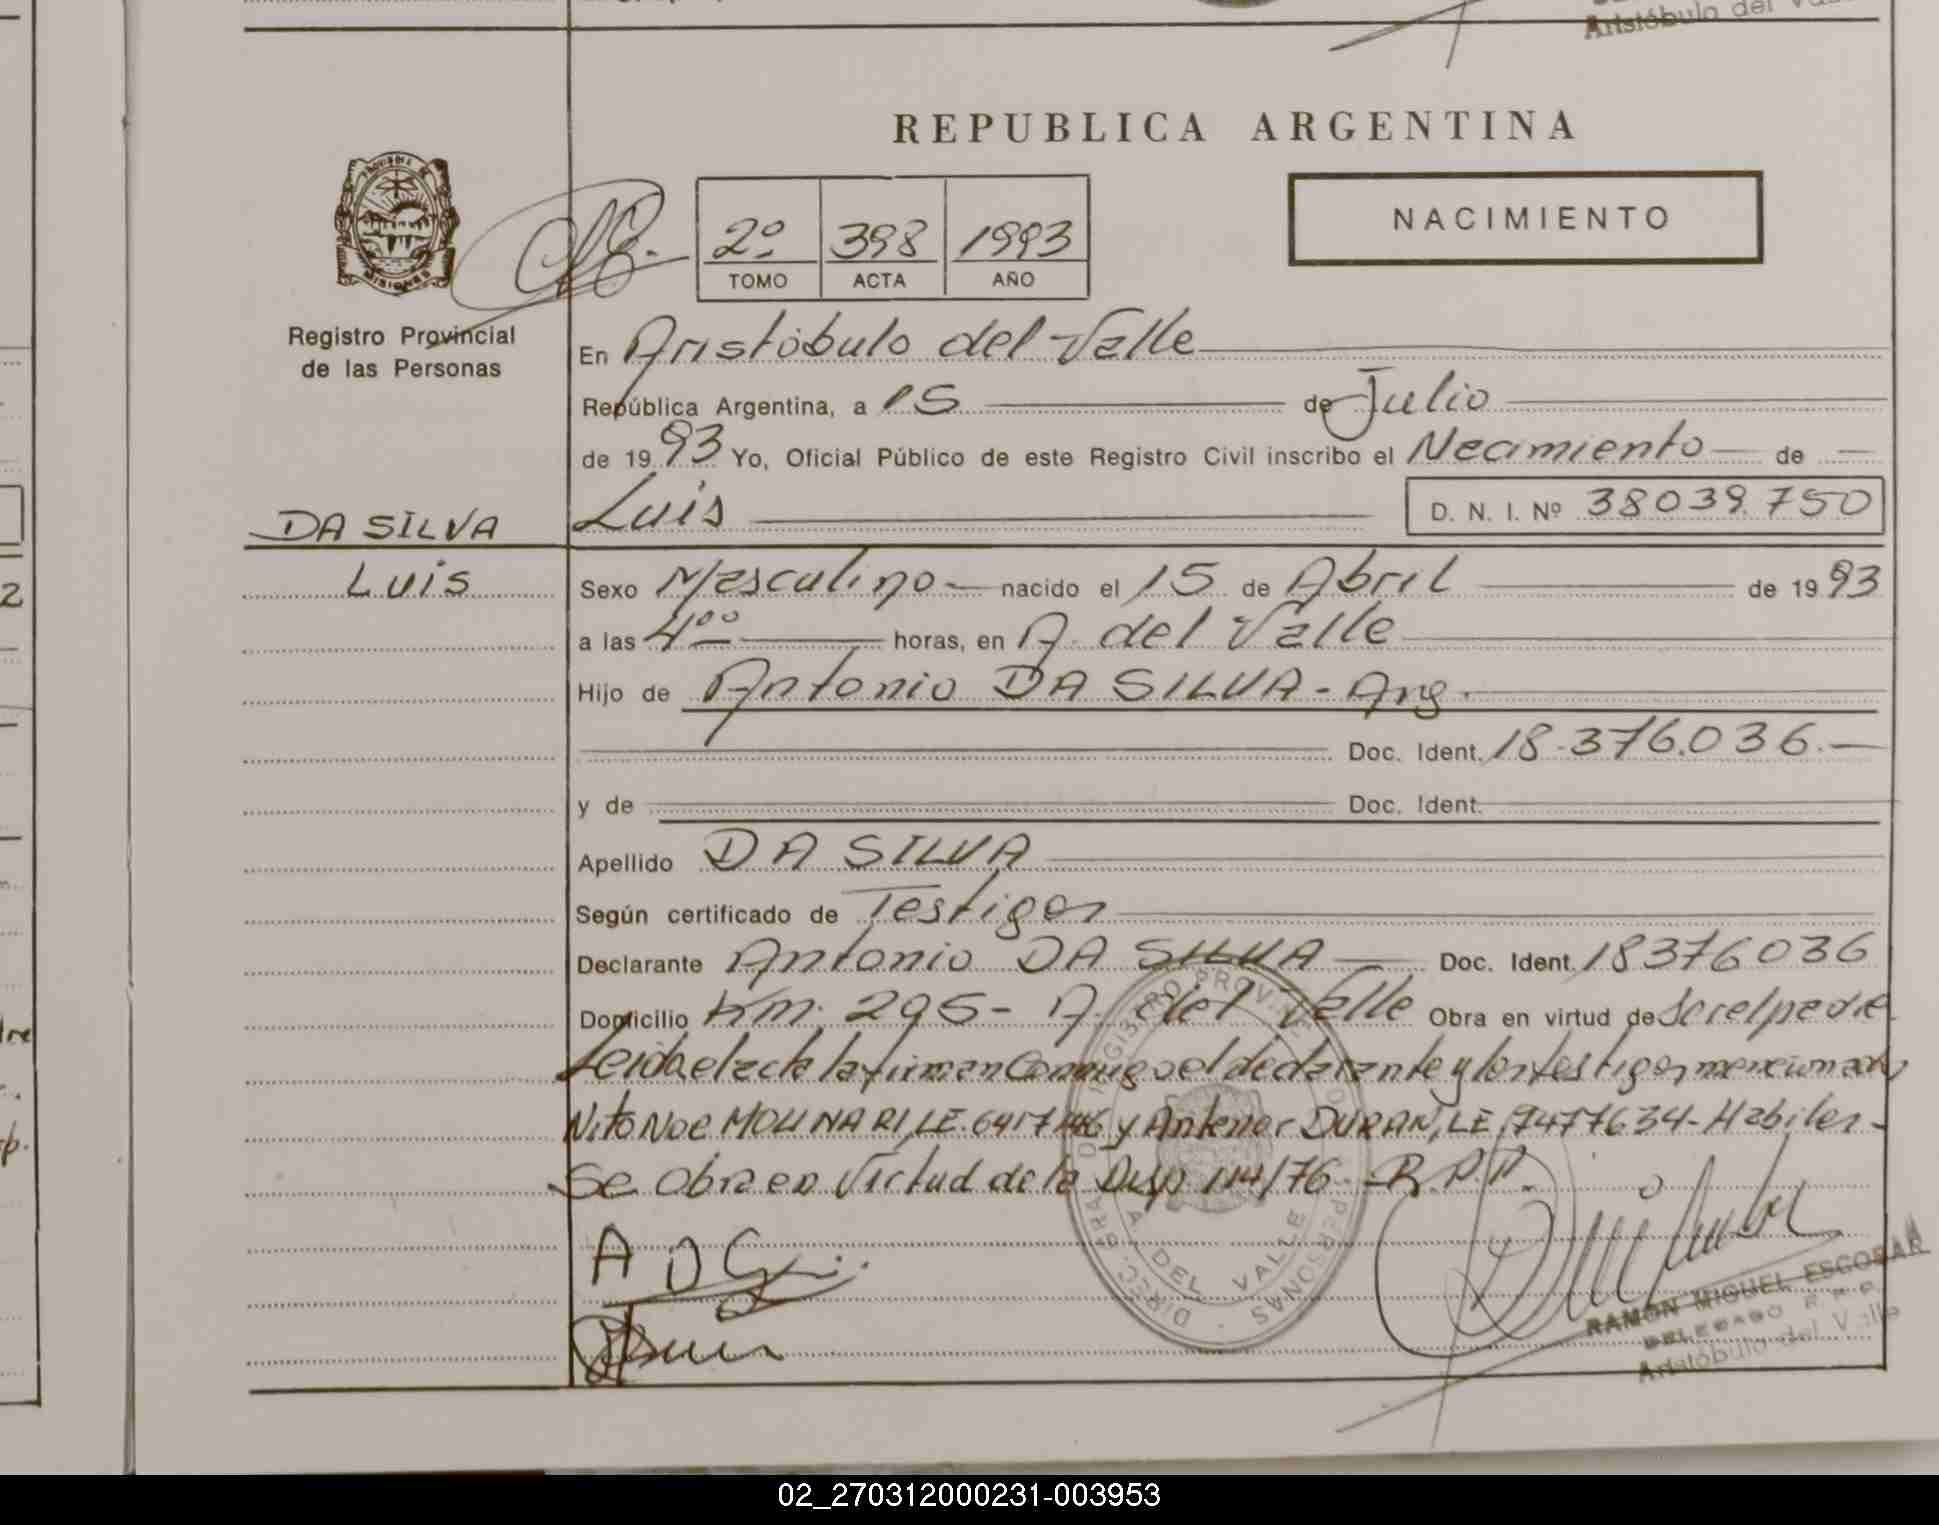 Aristóbulo del Valle
REPUBLICA ARGENTINA
NACIMIENTO
2º 398 1993
TOMO ACTA AÑO
PROVINCIA DE MISIONES
Registro Provincial
de las Personas
En Aristóbulo del Valle
República Argentina, a 15 de Julio
de 1993 Yo, Oficial Público de este Registro Civil inscribo el Nacimiento de
DA SILVA Luis D. N. I. Nº 38039.750
Luis Sexo Masculino nacido el 15 de Abril de 1993
a las 4°° horas, en A. del Valle
Hijo de Antonio DA SILVA - Arg.
Doc. Ident. 18.376.036.
y de Doc. Ident.
Apellido DA SILVA
Según certificado de Testigos
Declarante Antonio DA SILVA Doc. Ident. 18376036
Domicilio Km. 295 - A. del Valle Obra en virtud de ser el padre
Leida el acta la firman Conmigo el declarante y los testigos mencionados
Nito Noe MOLINARI, LE. 6417146 y Antenor DURAN, LE, 7477634 - Habiles -
Se obra en Virtud de la Disp 114/76 - R.P.P.
A D
DIREC. GRAL. DE REGISTRO PROVINCIAL DE PERSONAS
A. DEL VALLE
RAMON MIGUEL ESCOBAR
DELEGADO R. P. P.
Aristóbulo del Valle
02_270312000231-003953